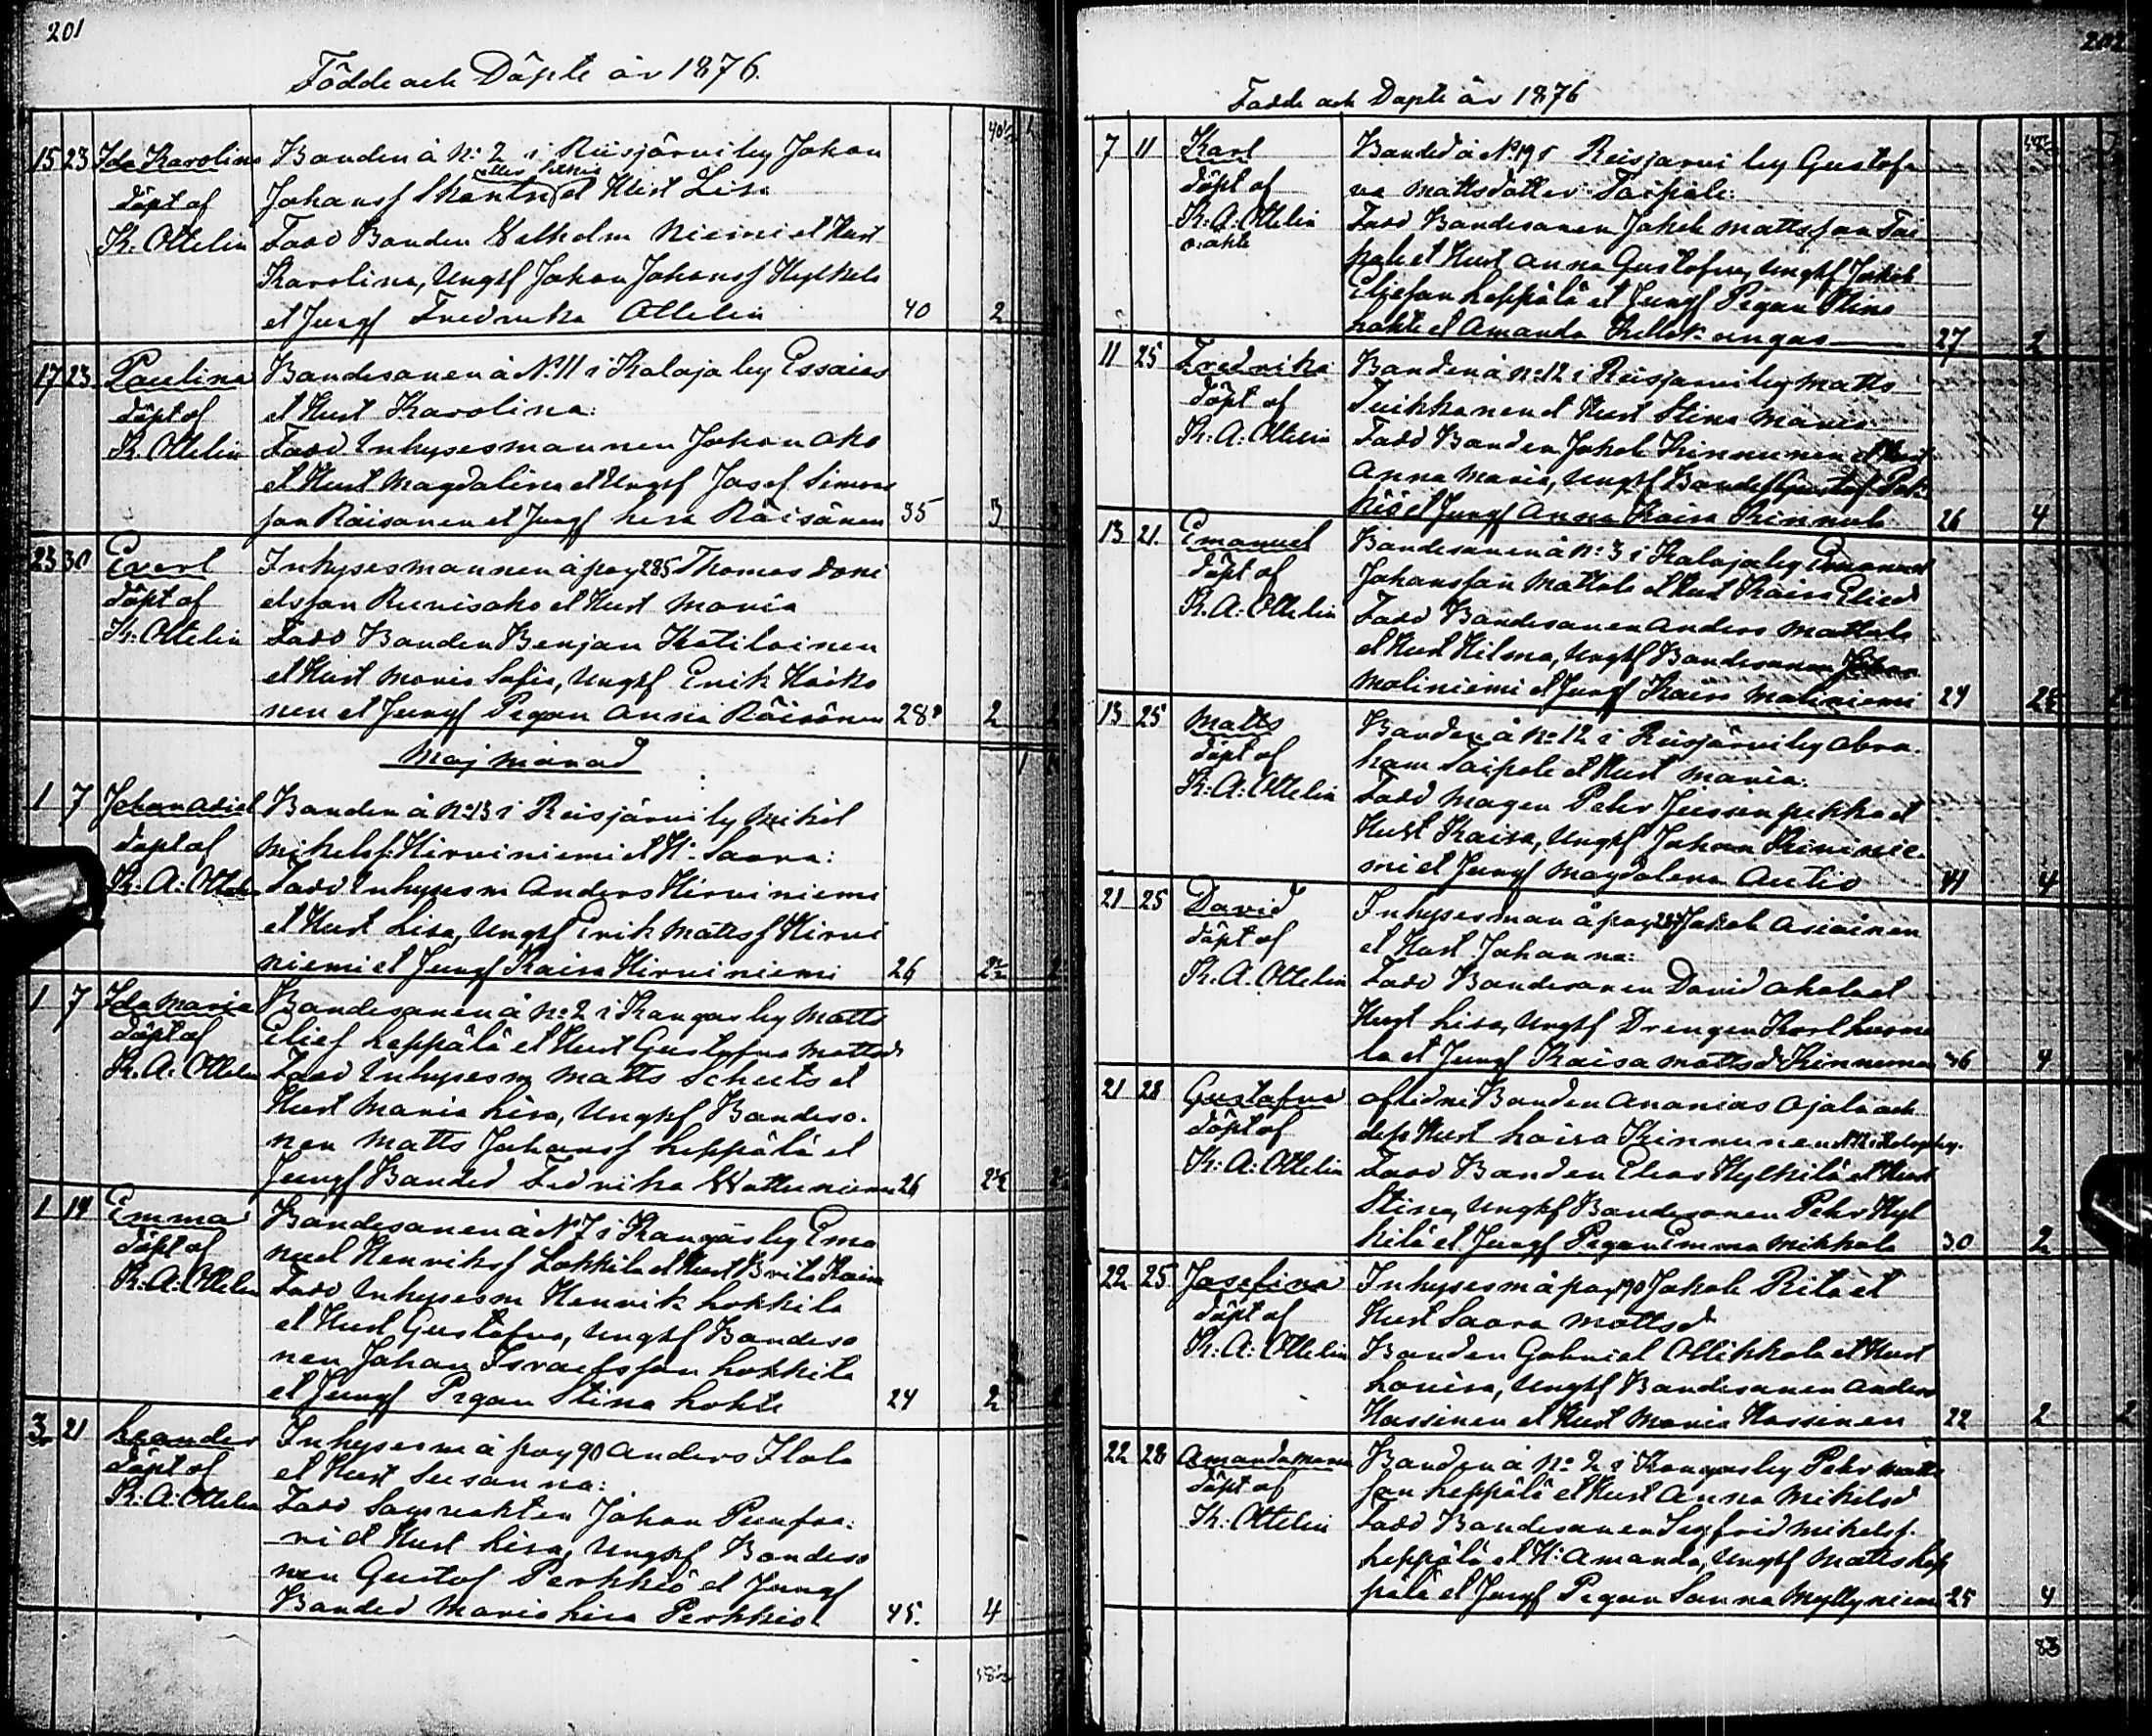 201
Födde och Döpte år 1876.
40½
15 23 Ida Karolina Bonden å No: 2 i Reisjärvi by Johan
döpt af Johansf Skantsi et Hust Lisa
K. Ottelin Fadd Bonden Wilhelm Niemi et Hust
Karolina, Ungkf Johan Johansf Hylkilä
et Jungf Fredrika Ottelin 40 2
17 23 Paulina Bondesonen å No 11 i Kalaja by Essaias
döpt af et Hust Karolina:
K Ottelin Fadd Inhysesmannen Johan Aho
et Hust Magdalina et Ungkf Josef Simons
son Räisänen et Jungf Räisänen 35 3
23 30 Evert Inhysesmannen å pag 285 Thomas Dani
döpt af elsson et Hust Maria
K. Ottelin Fadd Bonden Benjam Katilainen
et Hust Maria Sofia, Ungkf Erik
nen et Jungf Pigan Anna Räisänen 28 2
Maj månad
1 7 Johan Adiel Bonden å No 13 i Reisjärvi by Mikel
döpt af Mikelsf: Hirviniemi et H: Saara:
K. A: Ottelin Fadd Inhysesm Anders Hirviniemi
et Hust Lisa, Ungkf Erik Mattsf Hirvi
niemi et Jungf Kaisa Hirviniemi 26 2½
1 7 Ida Maria Bondesonen å No: 2 i Kangas by Matts
döpt af Elief Leppälä et Hust Gustafva Mattsd
K. A. Ottelin Fadd Inhysesm Matts Scheets et
Hust Maria Lisa, Ungkf Bondeso.
nen Matts Johansf Leppälä et
Jungf Banded Fedrika 26 2½
1 14 Emma Bondesonen å No 7 i Kangas by Ema
döpt af nuel Henriksf Lokkila et Hust Brita Kaisa
K. A: Ottelin Fadd Inhysesm Henrik Lokkila
et Hust Gustafva, Ungkf Bondeso
nen Johan Israelsson Lokkila
et Jungf Pigan Stina Lohte 24 2
3 21 Leander Inhysesm å pag 90 Anders Ilola
döpt af et Hust Susanna:
K. A: Ottelin Fadd Johan
et Hust Lisa, Ungkf Bondeso
nen Gustaf Perkkiö et Jungf
Banded Maria Lisa Perkkiö 45. 4
58½
202
Födde och Döpte år 1876
7 11 Karl Banded å No 19 i Reisjärvi by Gustaf
döpt af va Mattsdotter Taipale:
K. A: Ottelin Fadd Bondesonen Jakob Mattsson Tai
oäkta pale et Hust Anna Gustafva, Ungkf Jakob
Eliesson Leppälä et Jungf Pigan Stina
et Amanda 27 2
11 25 Fredrika Bonden å No: 12 i Reisjärvi by Matts
döpt af et Hust Stina Maria
K. A: Ottelin Fadd Bonden Jakob Kinnunen et Hust
Anna Maria, Ungkf
et Jungf Anna Kaisa 26 4
13 21. Emanuel Bondesonen å No: 3 i Kalaja by Emanuel
döpt af Johansson Mattala et Hust Kaisa Elied
K. A: Ottelin Fadd Bondesonen Anders Mattala
et Hust Hilma, Ungkf Bondesonen
Maliniemi et Jungf Kaisa Maliniemi 24 2½
13 25 Matts Bonden å No: 12 i Reisjärvi by Abra.
döpt af ham Taipale et Hust Maria:
K. A: Ottelin Fadd Magen Pehr Jussinpekka et
Hust Kaisa, Ungkf Johan Kininie.
mi et Jungf Magdalena Autio 41 4
21 25 David Inhysesman å pag Jakob Asiainen
döpt af et Hust Johanna:
K. A. Ottelin Fadd Bondesonen David Ahola et
Hust Lisa, Ungkf Drengen Karl
la et Jungf Kaisa Mattsd Kinnunen 36 4
21 28 Gustafva Aflidne Bonden Ananias Ojala och
döpt af dess Hust Kaisa Kinnunen
K: A: Ottelin Fadd Bonden Elias Hylkilä et Hust
Stina, Ungkf Bondesonen Pehr Hyl
kilä et Jungf Pigan Emma Mikkola 30 2
22 25 Josefina Inhysesm å pag 190 Jakob Rita et
döpt af Hust Saara Mattsd
K: A: Ottelin Bonden Gabriel Ollikkala et Hust
Lovisa, Ungkf Bondesonen Anders
Hassinen et Hust Maria Hassinen 22 2
22 28 Amanda Maria Bonden å No: 2 i Kangas by Pehr Matts
döpt af son Leppälä et Hust Anna Mikelsd
K: Ottelin Fadd Bondesonen Sigfrid Mikelsf.
Leppälä et H: Amanda, Ungkf Matts Lep
pälä et Jungf Pigan Sanna Myllyniemi 25 4
83